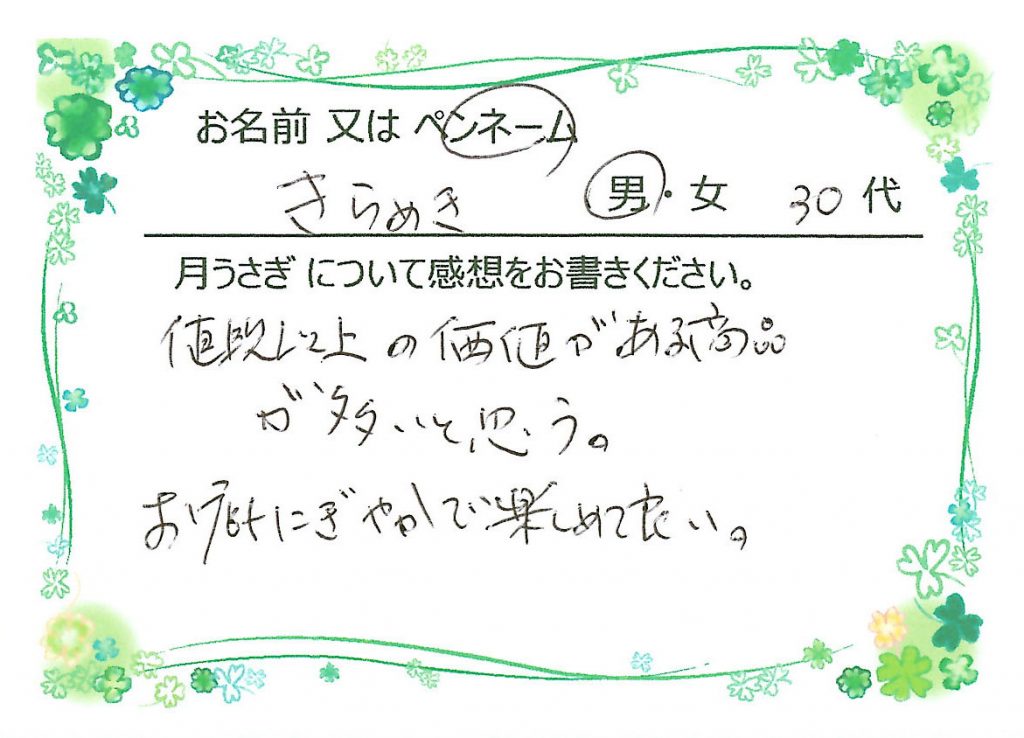 お名前 又は ペンネーム
きらめき 男・女 30代
月うさぎ について感想をお書きください。
値段以上の価値がある商品
が多いと思う。
お店もにぎやかで楽しめて良い。